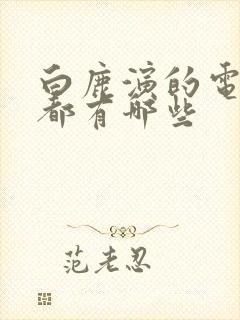 白鹿演的電
都有哪些
范老忍